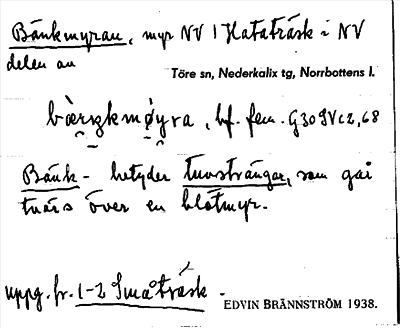 Bänkmyran, myr NV l Hataträsk i NV
delen av
Töre sn, Nederkalix tg, Norrbottens l.
bf. fem.
Bänk- betyder tuvsträngar, som gå
tvärs över en blötmyr.
uppg. fr. 1-2 Småträsk.
EDVIN BRÄNNSTRÖM 1938.